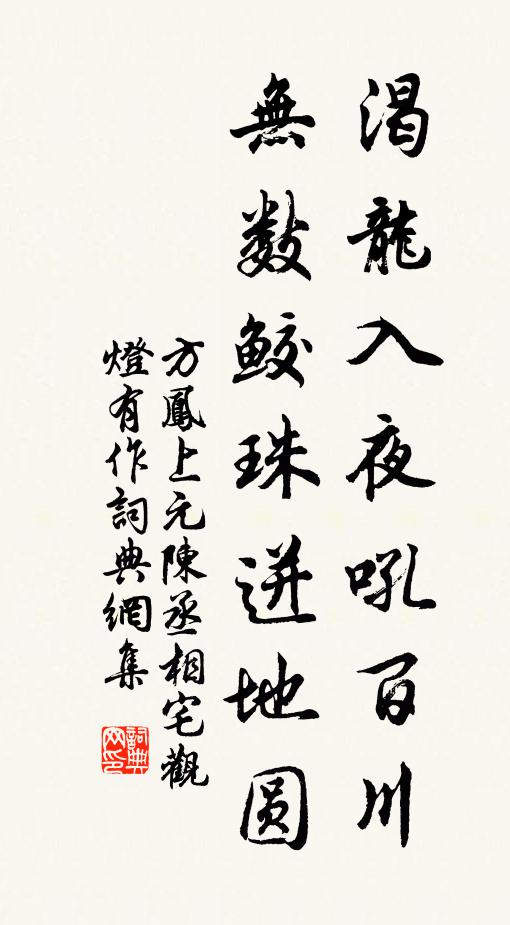 渴龍入夜吼百川
無數鮫珠迸地圓
方鳳上元陳丞相宅觀
燈有作詞典網集
詞典網印